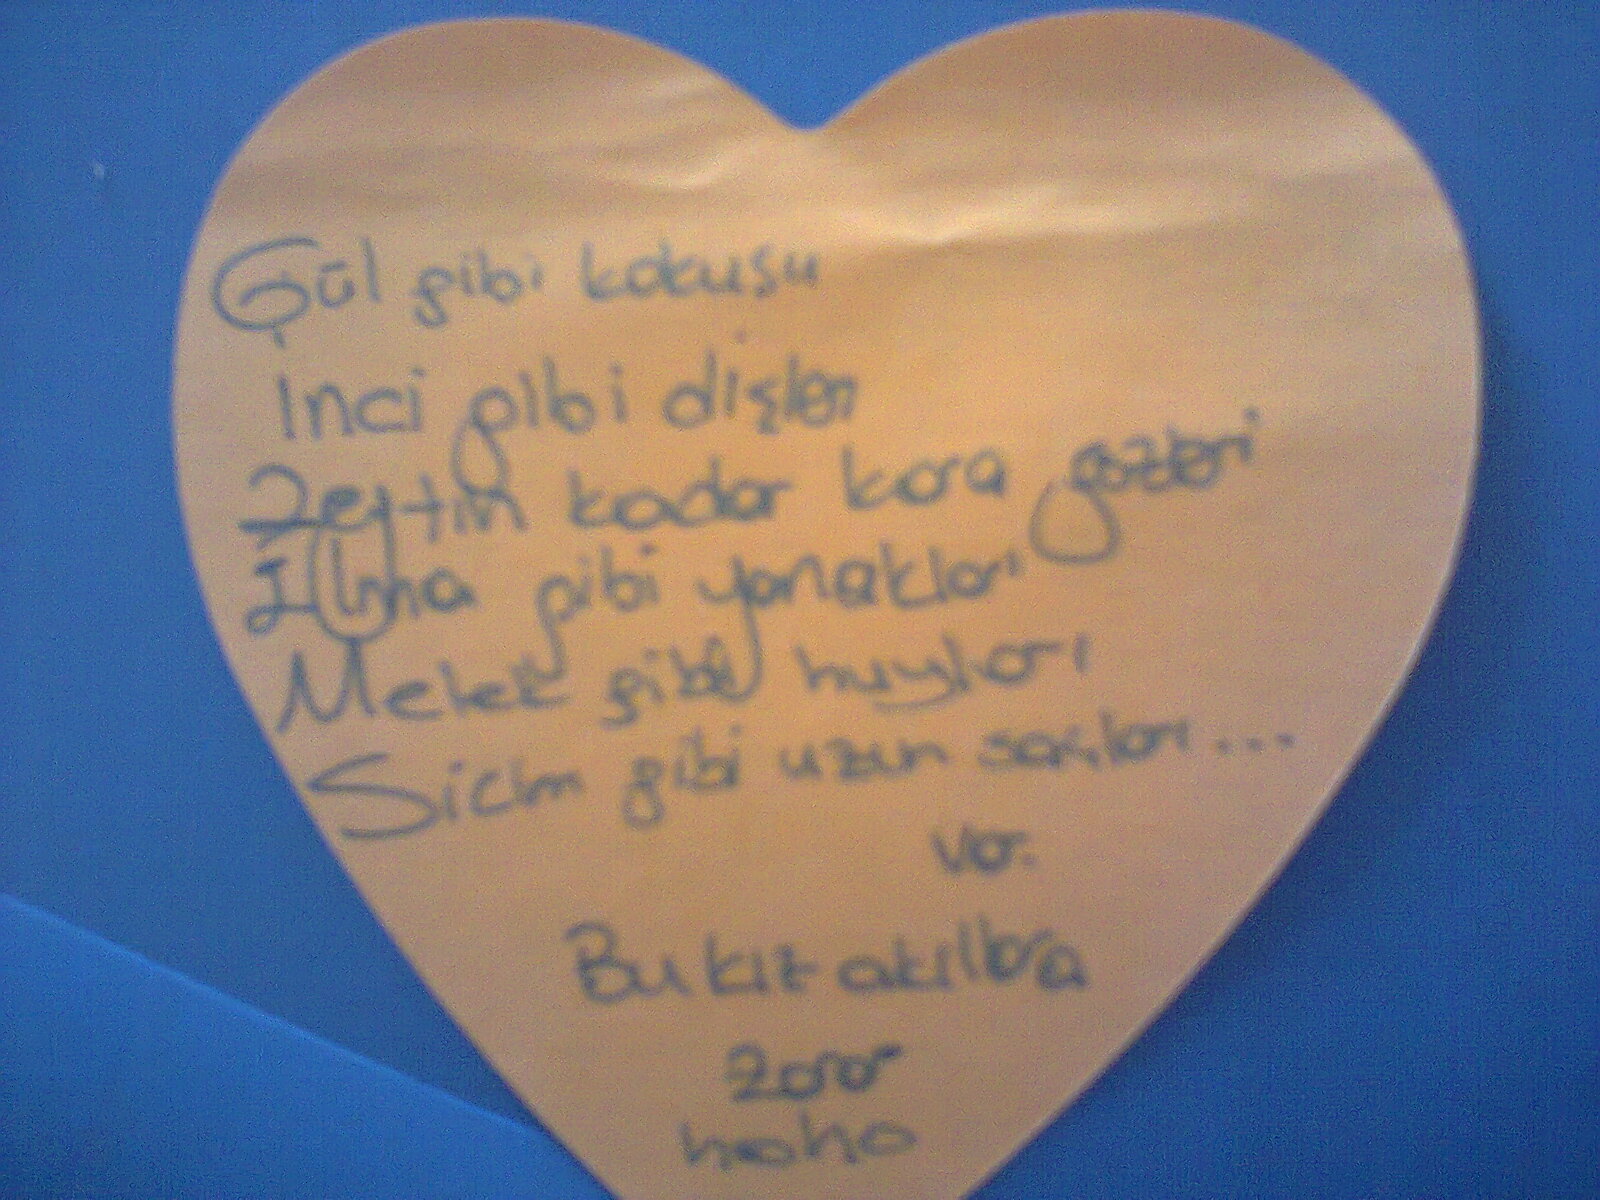 Gül gibi kokusu
inci gibi dişleri
Zeytin kadar kara gözleri
Elma gibi yanakları
Melek gibi huyları
Sicim gibi uzun saçları...
var.
Bu kız akıllara
zarar
haha